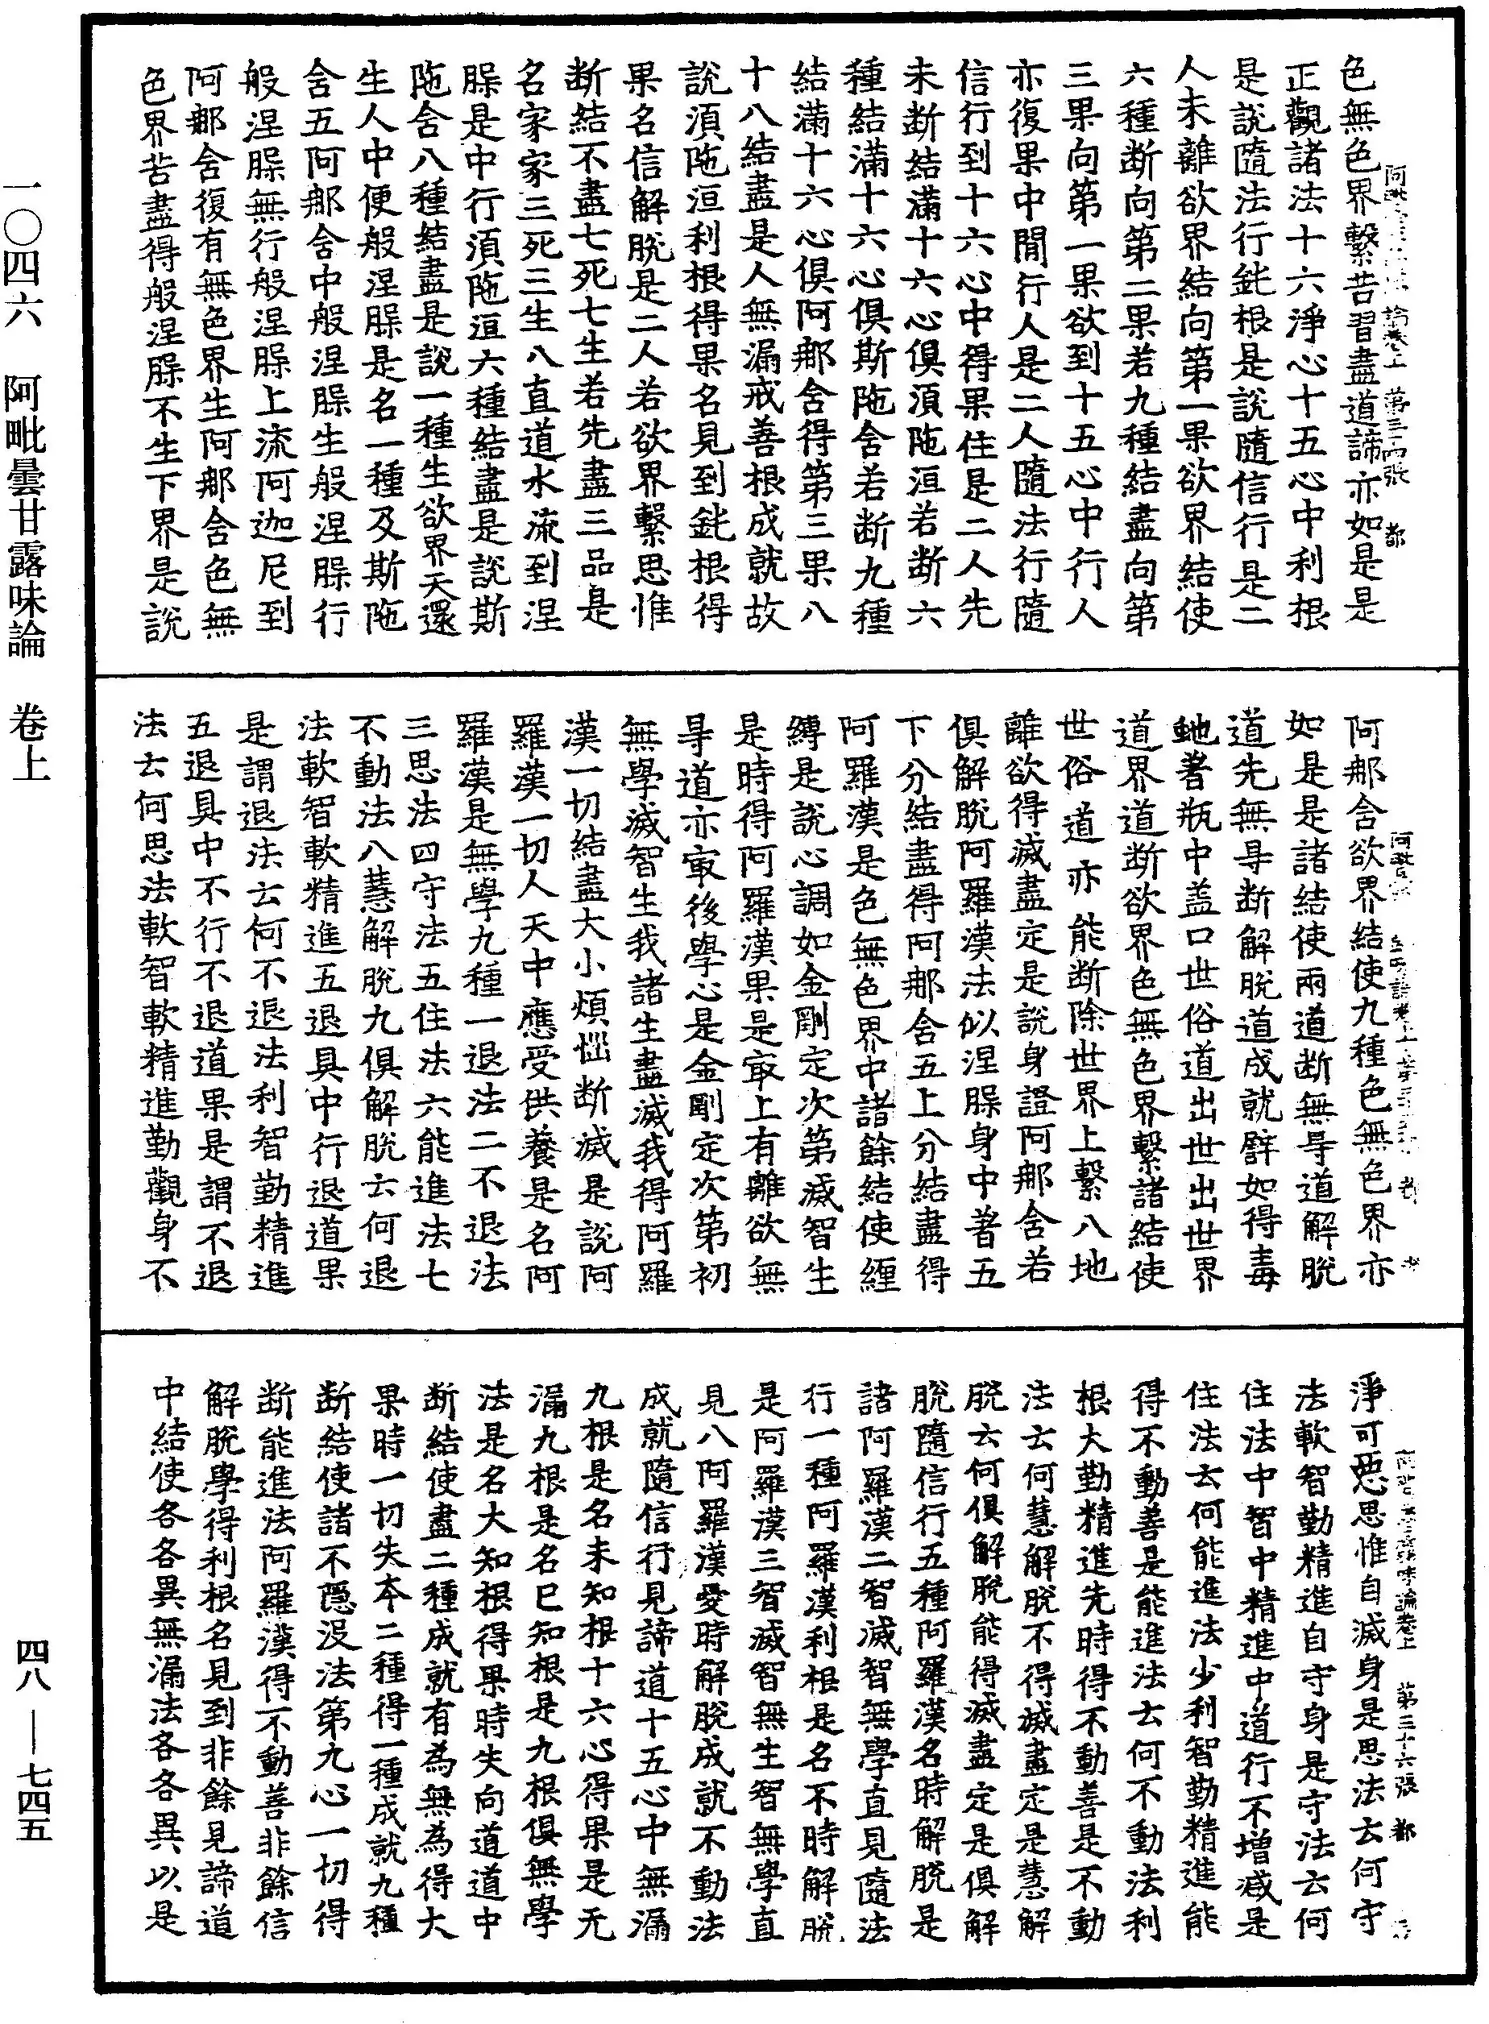 一〇四六　阿毗曇甘露味論　卷上
四八—七四五
色無色界繫苦習盡道諦亦如是是
正觀諸法十六淨心十五心中利根
是說隨法行鈍根是說隨信行是二
人未離欲界結向第一果欲界結使
六種断向第二果若九種結盡向第
三果向第一果欲到十五心中行人
亦復果中間行人是二人隨法行隨
信行到十六心中得果住是二人先
未断結滿十六心俱湏陁洹若断六
種結滿十六心俱斯陁含若断九種
結滿十六心俱阿那含得第三果八
十八結盡是人無漏戒善根成就故
說湏陁洹利根得果名見到鈍根得
果名信解脫是二人若欲界繫思惟
断結不盡七死七生若先盡三品是
名家家三死三生八直道水流到涅
䏶是中行湏陁洹六種結盡是說斯
陁含八種結盡是說一種生欲界天還
生人中便般涅䏶是名一種及斯陁
含五阿那含中般涅䏶生般涅䏶行
般涅䏶無行般涅䏶上流阿迦尼到
阿那含復有無色界生阿那含色無
色界苦盡得般涅䏶不生下界是說
阿那含欲界結使九種色無色界亦
如是是諸結使兩道断無㝵道解脫
道先無㝵断解脫道成就譬如得毒
虵著瓶中盖口世俗道出世出世界
道界道断欲界色無色界繫諸結使
世俗道亦能断除世界上繫八地
離欲得滅盡定是說身證阿那含若
俱解脫阿羅漢法似涅䏶身中著五
下分結盡得阿那含五上分結盡得
阿羅漢是色無色界中諸餘結使纏
縛是說心調如金剛定次第滅智生
是時得阿羅漢果是㝡上有離欲無
㝵道亦㝡後學心是金剛定次第初
無學滅智生我諸生盡滅我得阿羅
漢一切結盡大小煩惱断滅是說阿
羅漢一切人天中應受供養是名阿
羅漢是無學九種一退法二不退法
三思法四守法五住法六能進法七
不動法八慧解脫九俱解脫云何退
法軟智軟精進五退具中行退道果
是謂退法云何不退法利智勤精進
五退具中不行不退道果是謂不退
法云何思法軟智軟精進勤觀身不
淨可惡思惟自滅身是思法云何守
法軟智勤精進自守身是守法云何
住法中智中精進中道行不增減是
住法云何能進法少利智勤精進能
得不動善是能進法云何不動法利
根大勤精進先時得不動善是不動
法云何慧解脫不得滅盡定是慧解
脫云何俱解脫能得滅盡定是俱解
脫隨信行五種阿羅漢名時解脫是
諸阿羅漢二智滅智無學直見隨法
行一種阿羅漢利根是名不時解脫
是阿羅漢三智滅智無生智無學直
見八阿羅漢愛時解脫成就不動法
成就隨信行見諦道十五心中無漏
九根是名未知根十六心得果是无
漏九根是名已知根是九根俱無學
法是名大知根得果時失向道道中
断結使盡二種成就有為無為得大
果時一切失本二種得一種成就九種
断結使諸不隱没法第九心一切得
断能進法阿羅漢得不動善非餘信
解脫學得利根名見到非餘見諦道
中結使各各異無漏法各各異以是